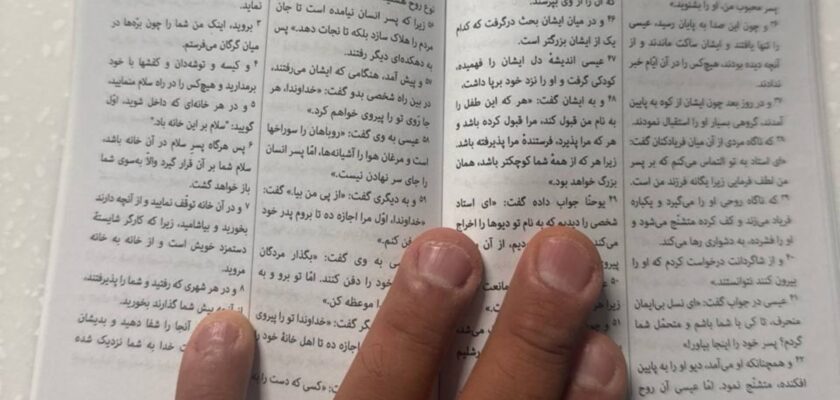 پسر محبوب من، او را بشنوید.»
۳۶ و چون این صدا به پایان رسید، عیسی
را تنها یافتند و ایشان ساکت ماندند و از
آنچه دیده بودند، هیچ‌کس را در آن ایّام خبر
ندادند.
۳۷ و در روز بعد چون ایشان از کوه به پایین
آمدند، گروهی بسیار او را استقبال نمودند.
۳۸ که ناگاه مردی از آن میان فریادکنان گفت:
«ای استاد به تو التماس می‌کنم که بر پسر
من لطف فرمایی زیرا یگانه فرزند من است.
۳۹ که ناگاه روحی او را می‌گیرد و یکباره
فریاد می‌زند و کف کرده متشنّج می‌شود و
او را فشرده، به دشواری رها می‌کند.
۴۰ و از شاگردانت درخواست کردم که او را
بیرون کنند نتوانستند.»
۴۱ عیسی در جواب گفت: «ای نسل بی‌ایمان
منحرف، تا کی با شما باشم و متحمّل شما
گردم؟ پسر خود را اینجا بیاور!»
۴۲ و همچنانکه او می‌آمد، دیو او را به پایین
افکنده، متشنّج نمود. امّا عیسی آن روح
که آن را از وی بپرسند.
۴۶ و در میان ایشان بحث درگرفت که کدام
یک از ایشان بزرگتر است.
۴۷ عیسی اندیشهٔ دل ایشان را فهمیده،
کودکی گرفت و او را نزد خود برپا داشت،
۴۸ و به ایشان گفت: «هر که این طفل را
به نام من قبول کند، مرا قبول کرده باشد و
هر که مرا پذیرد، فرستندهٔ مرا پذیرفته باشد.
زیرا هر که از همهٔ شما کوچکتر باشد، همان
بزرگ خواهد بود.»
۴۹ یوحنّا جواب داده گفت: «ای استاد
شخصی را دیدیم که به نام تو دیوها را اخراج
می‌کند
دیم، از آن
پیروی
۵۰
مانعت
زیرا هر
۵۱
می‌شد،
رشلیم
نوع روح هستید
۵۶ زیرا که پسر انسان نیامده است تا جان
مردم را هلاک سازد بلکه تا نجات دهد.» پس
به دهکده‌ای دیگر رفتند.
۵۷ و پیش آمد، هنگامی که ایشان می‌رفتند،
در بین راه شخصی بدو گفت: «خداوندا، هر
جا رَوی تو را پیروی خواهم کرد.»
۵۸ عیسی به وی گفت: «روباهان را سوراخها
است و مرغان هوا را آشیانه‌ها، امّا پسر انسان
را جای سر نهادن نیست.»
۵۹ و به دیگری گفت: «از پی من بیا.» گفت:
«خداوندا، اوّل مرا اجازه ده تا بروم پدر خود
دفن کنم.»
به وی گفت: «بگذار مردگان
خود را دفن کنند. امّا تو برو و به
موعظه کن.»
گر گفت: «خداوندا تو را پیروی
اجازه ده تا اهل خانهٔ خود را
گفت: «کسی که دست را به
نماید.
۳ بروید، اینک من شما را چون برّه‌ها در
میان گرگان می‌فرستم.
۴ و کیسه و توشه‌دان و کفشها با خود
برمدارید و هیچ‌کس را در راه سلام منمایید،
۵ و در هر خانه‌ای که داخل شوید، اوّل
گویید: "سلام بر این خانه باد."
۶ پس هرگاه پسر سلام در آن خانه باشد،
سلام شما بر آن قرار گیرد والا به‌سوی شما
باز خواهد گشت.
۷ و در آن خانه توقف نمایید و از آنچه دارند
بخورید و بیاشامید، زیرا که کارگر شایستهٔ
دستمزد خویش است و از خانه به خانه
مروید.
۸ و در هر شهری که رفتید و شما را پذیرفتند،
از آنچه پیش شما گذارند بخورید.
آنجا را شفا دهید و بدیشان
ت خدا به شما نزدیک شده